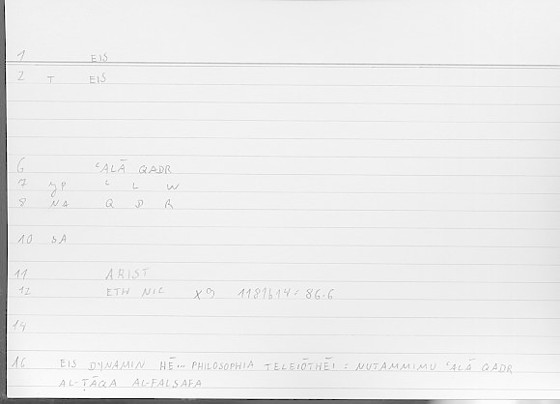 1 EIS
2 T EIS
6 ʿALĀ QADR
7 gP ʿ L W
8 NA Q D R
10 SA
11 ARIST
12 ETH NIC X9 1181b14 = 86.6
14
16 EIS DYNAMIN HĒ... PHILOSOPHIA TELEIŌTHĒI = NUTAMMIMU ʿALĀ QADR
AL-ṬĀQA AL-FALSAFA